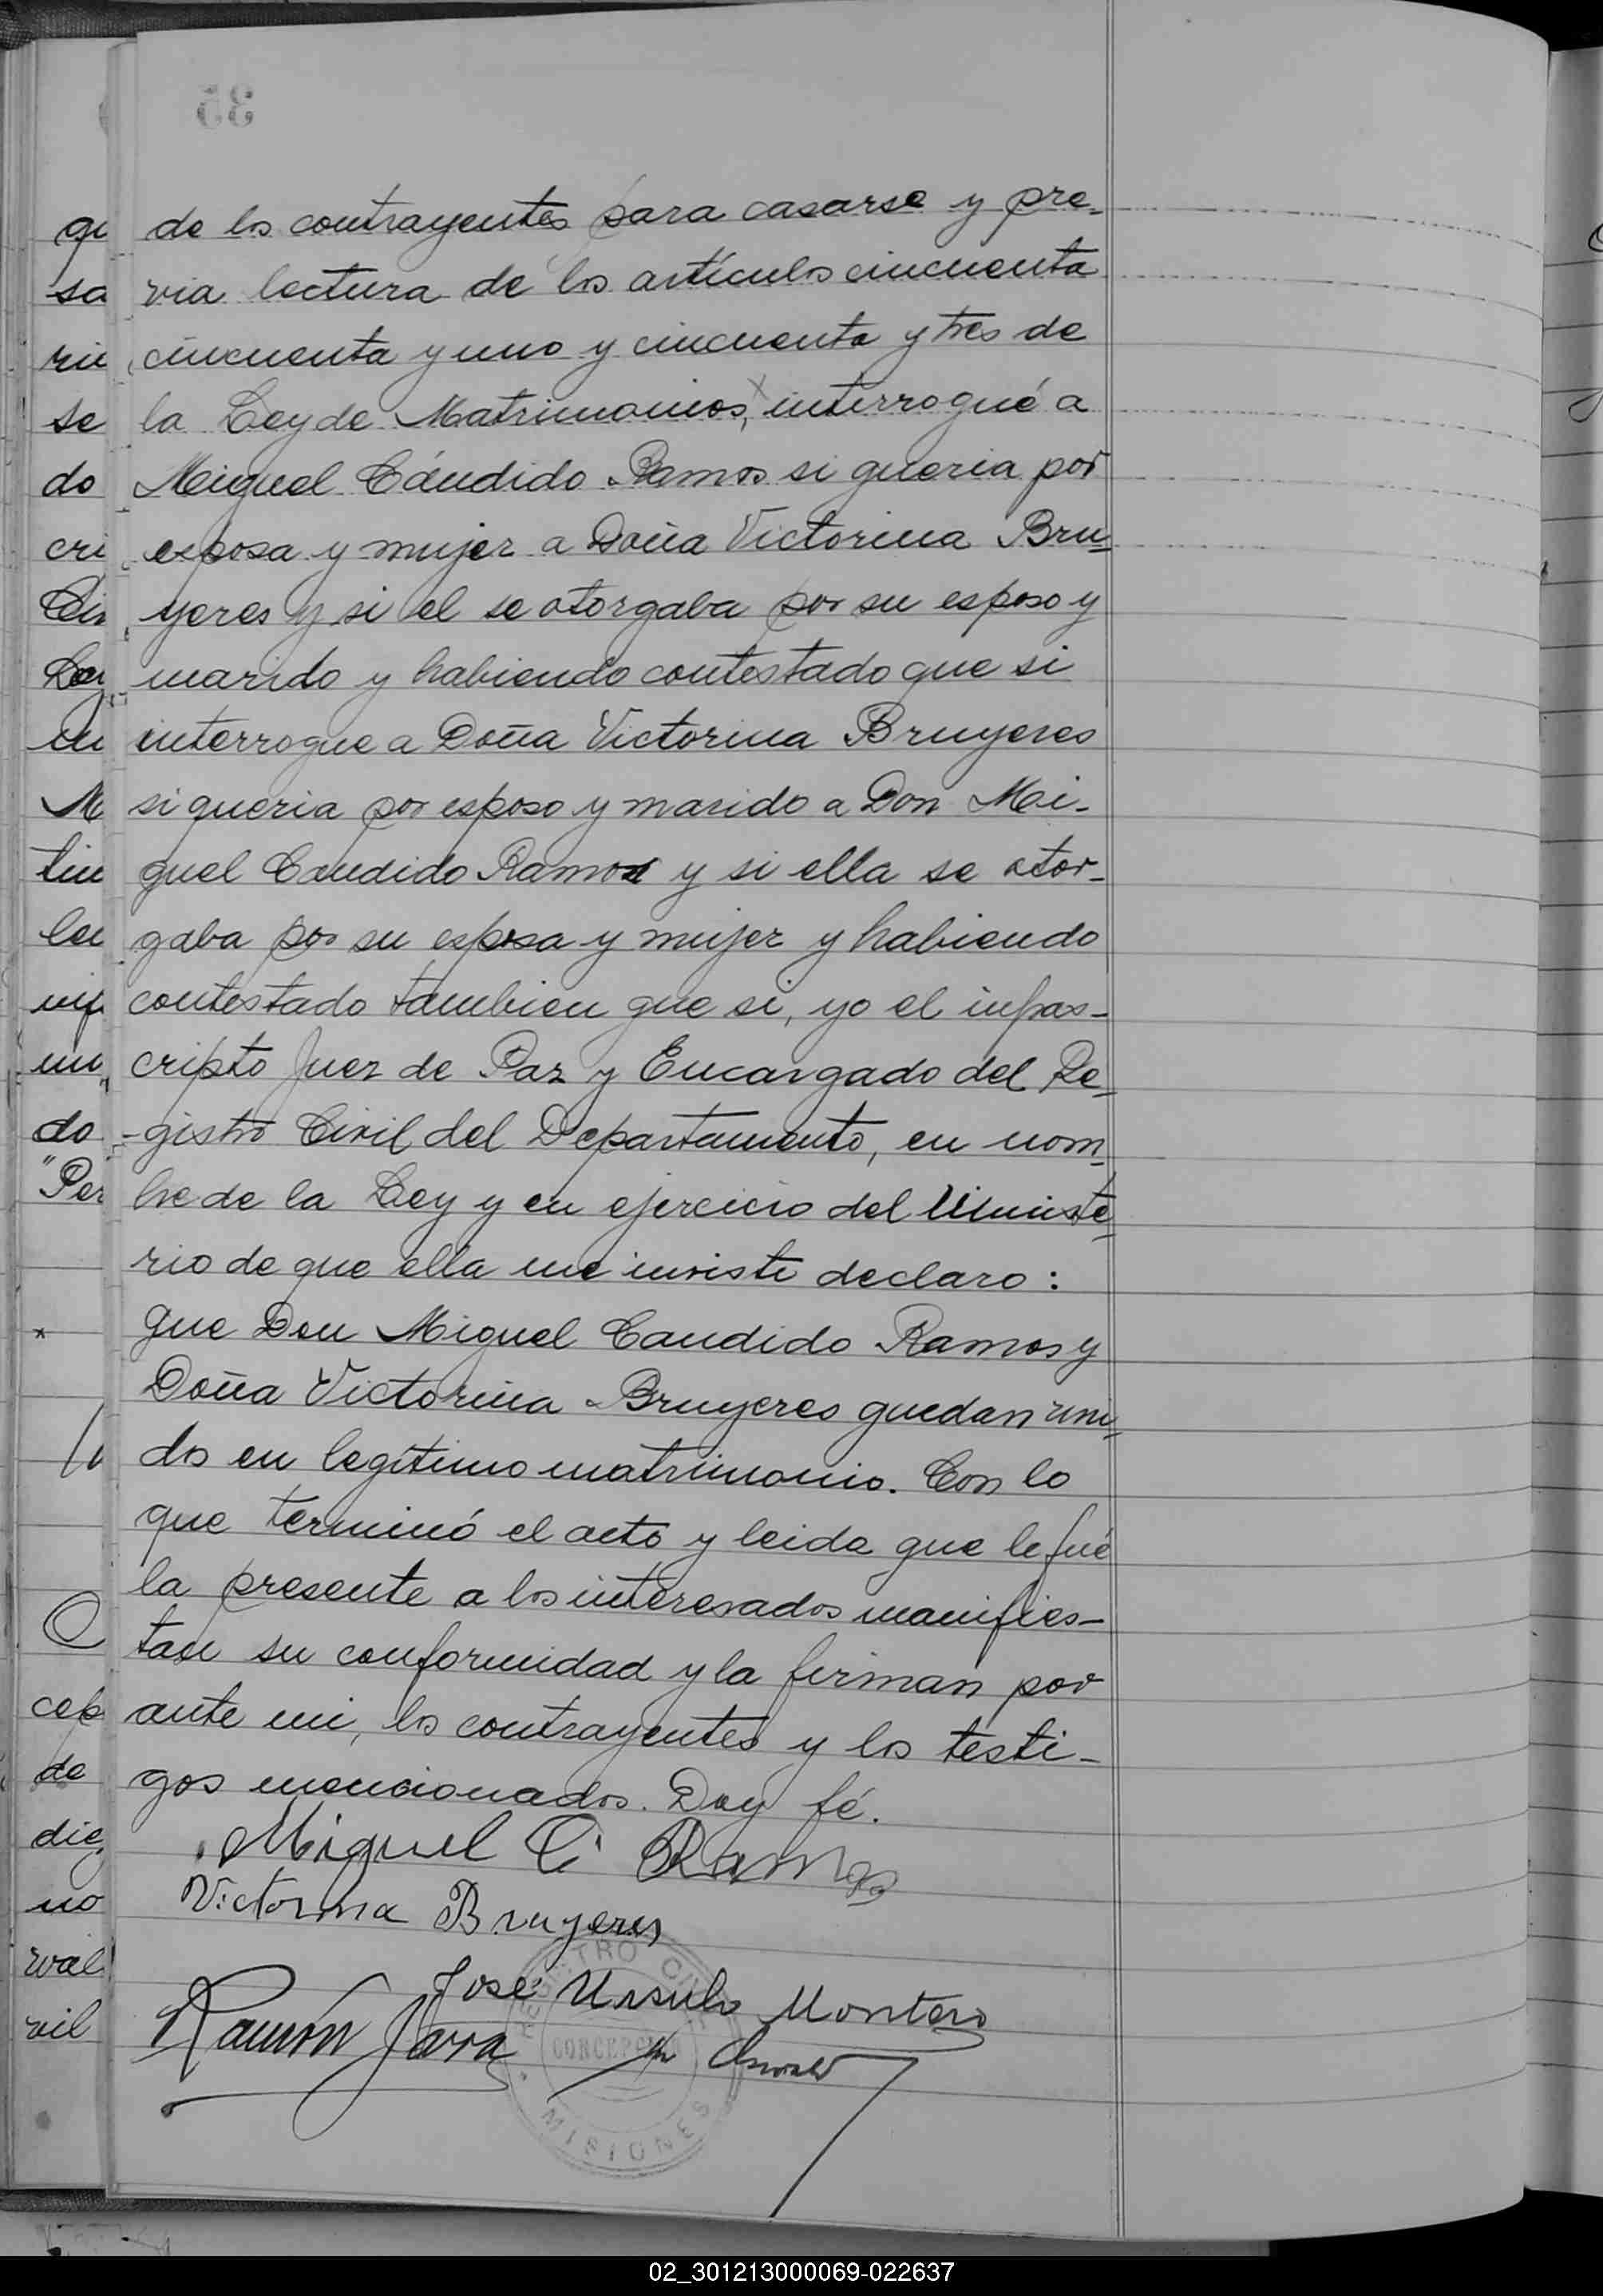 35
de los contrayentes para casarse y pre-
via lectura de los artículos cincuenta
cincuenta y uno y cincuenta y tres de
la Ley de Matrimonios, interrogué a
Miguel Cándido Ramos si queria por
esposa y mujer a Doña Victorina Bru-
yeres y si el se otorgaba por su esposo y
marido y habiendo contestado que si
interrogue a Doña Victorina Bruyeres
si queria por esposo y marido a Don Mi-
guel Candido Ramos y si ella se otor-
gaba por su esposa y mujer y habiendo
contestado tambien que si, yo el infras-
cripto Juez de Paz y Encargado del Re-
-gistro Civil del Departamento, en nom-
bre de la Ley y en ejercicio del Ministe-
rio de que ella me inviste declaro:
que Don Miguel Candido Ramos y
Doña Victorina Bruyeres quedan uni-
dos en legítimo matrimonio. Con lo
que terminó el acto y leida que le fué
la presente a los interesados manifies-
tan su conformidad y la firman por
ante mi, los contrayentes y los testi-
gos mencionados. Doy fé.
Miguel C. Ramos
Victorina Bruyeres
José Ursulo Montero
Ramón Jara
REGISTRO CIVIL
CONCEPCIÓN
MISIONES
qu
sa
rio
se
do
cri
Civ
Ley
en
M
tin
lec
do
"Per
cep
de
die
no
rval
vil
02_301213000069-022637